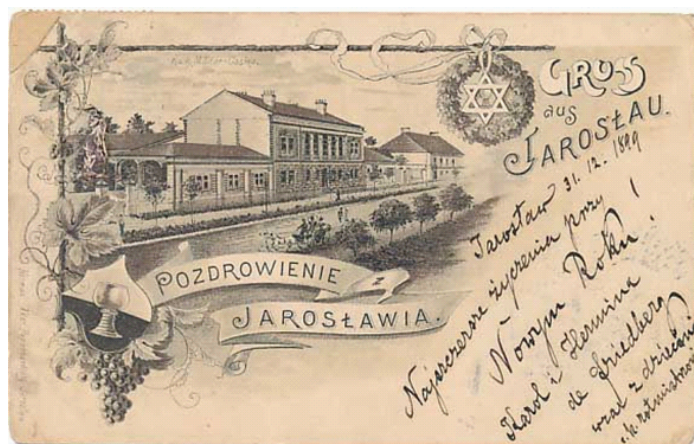 K.u.K. Militär-Casino.
GRUSS
aus
JAROSŁAU.
POZDROWIENIE
Z
JAROSŁAWIA.
Jarosław 31.12.1899
Najszczersze życzenia przy
Nowym Roku!
Karol i Hermina
de Friedberg
wraz z dziećmi